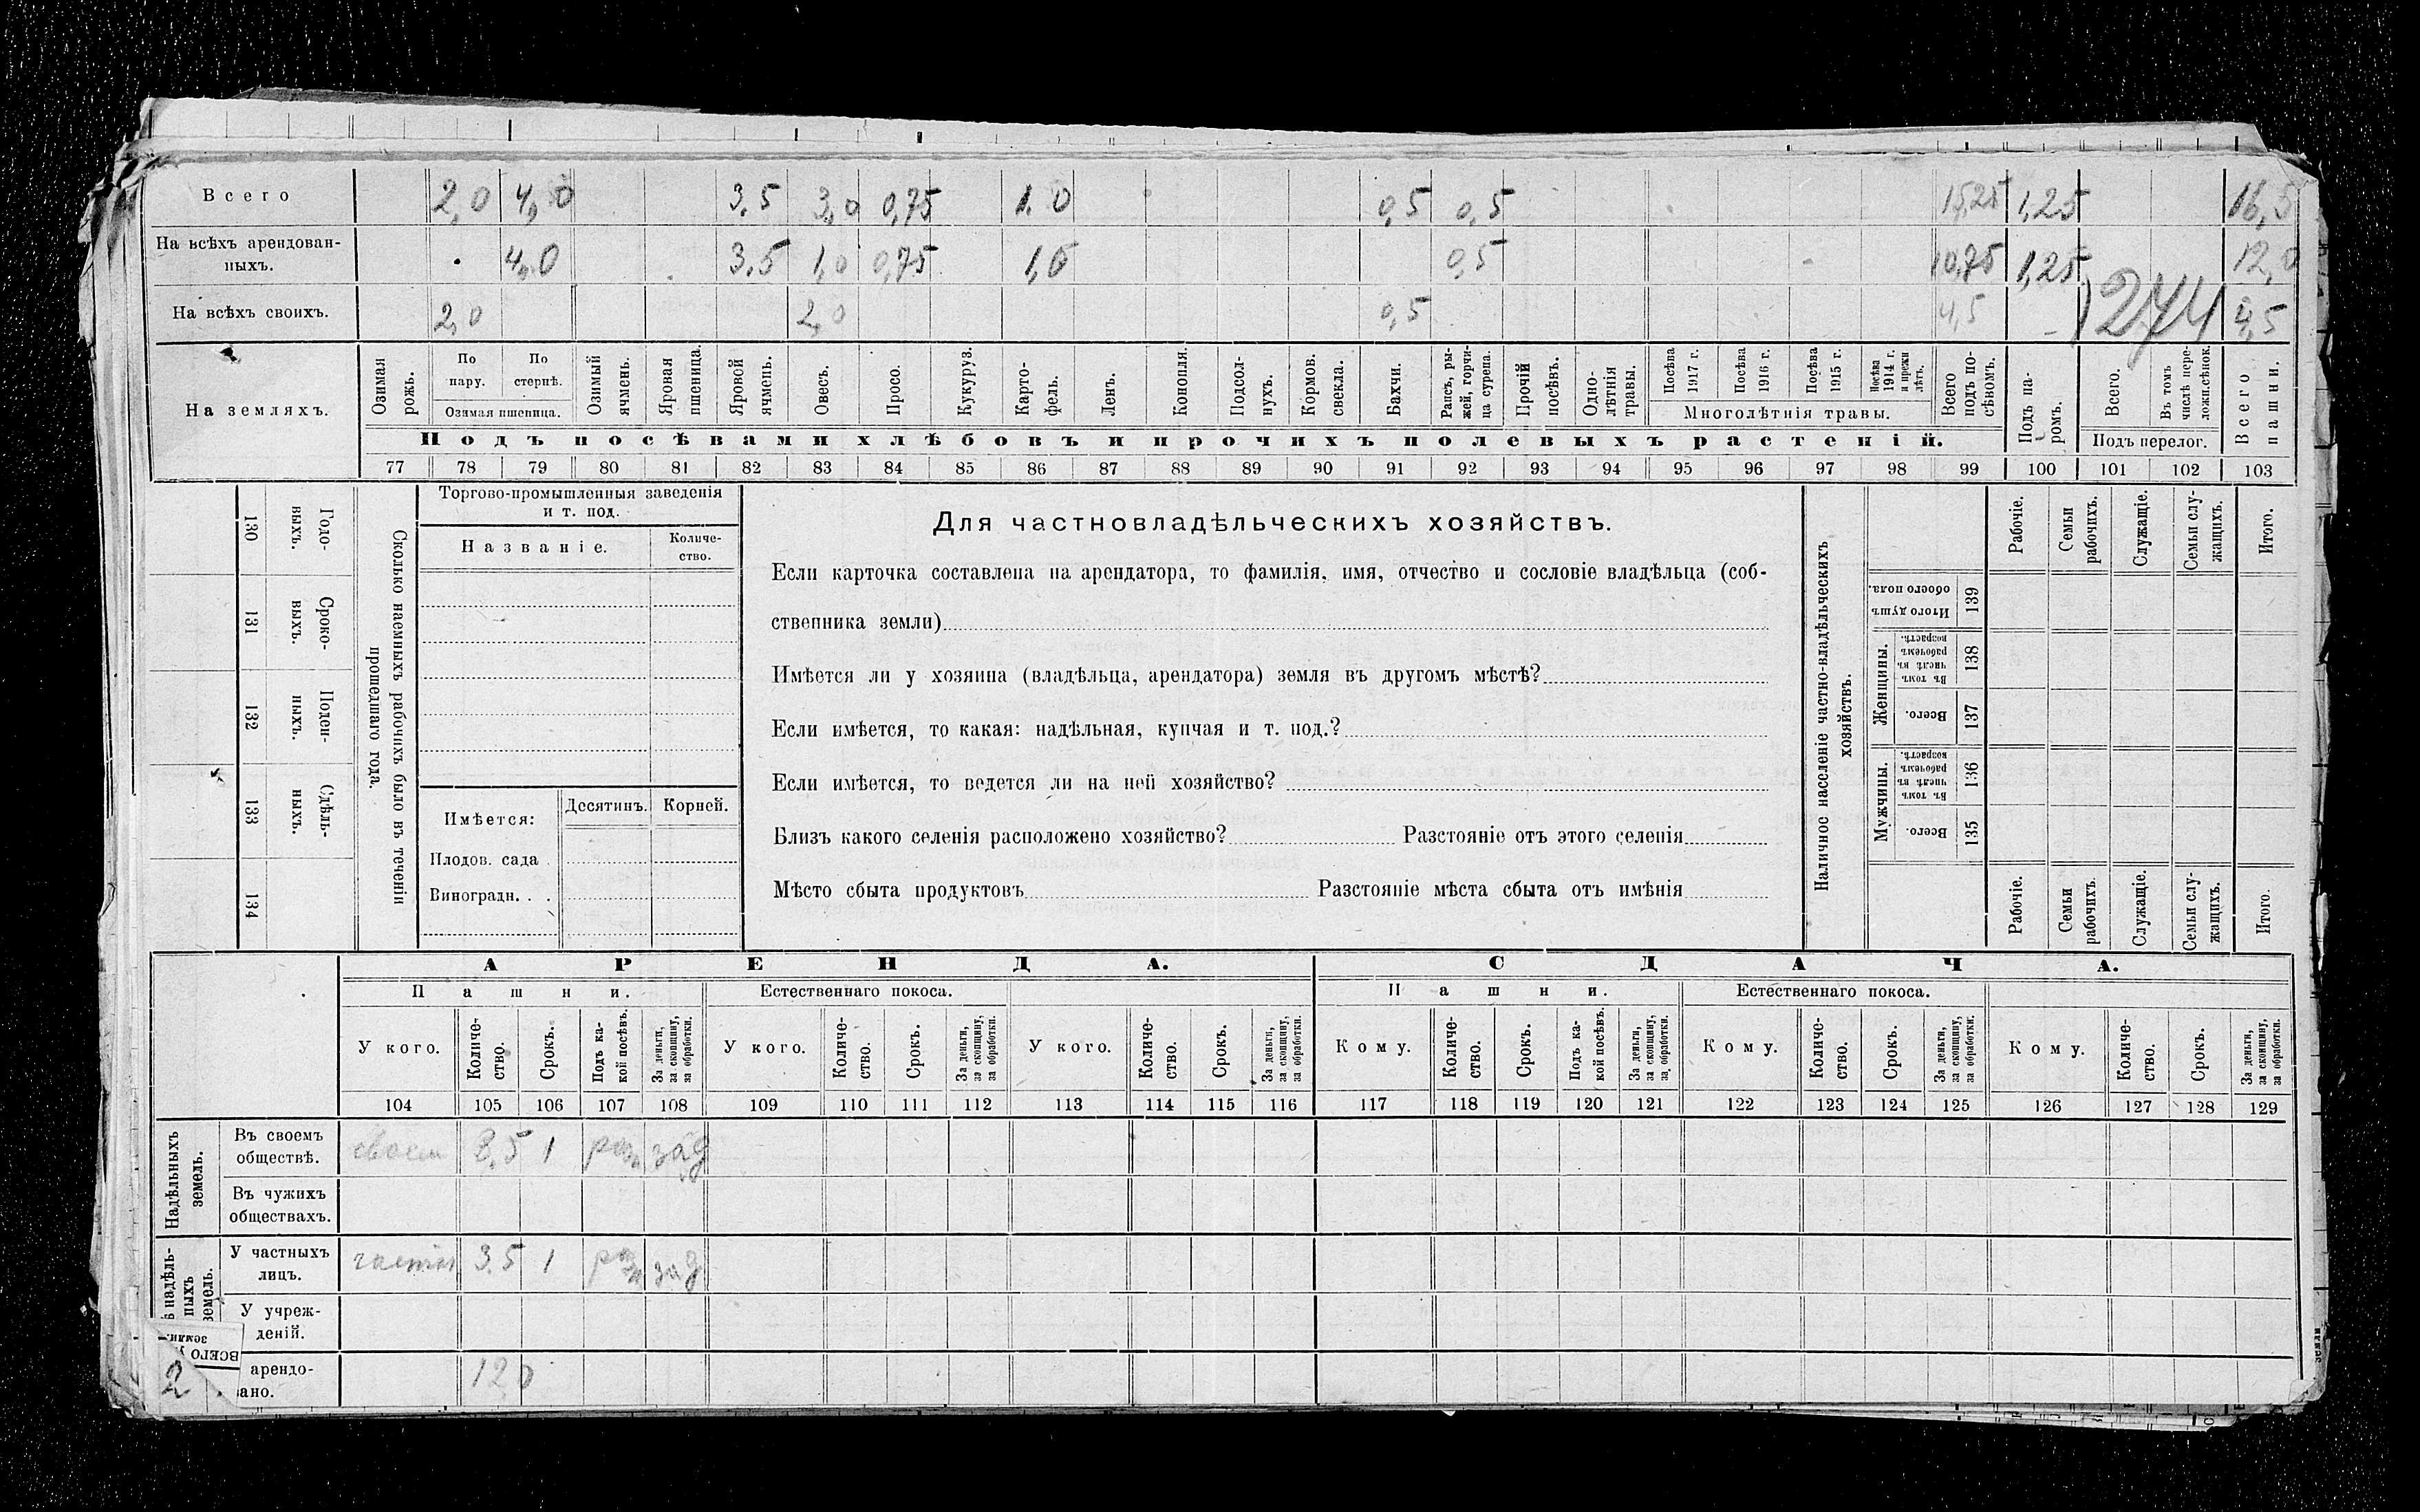 Всего 2,0 4,0 3,5 3,0 0,75 1,0 0,5 0,5 15,25 1,25 16,5
На всѣхъ арендован-
ныхъ. 4,0 3,5 1,0 0,75 1,0 0,5 10,75 1,25 12,0
На всѣхъ своихъ. 2,0 2,0 0,5 4,5 - 4,5
274
На земляхъ.
Озимая рожь.
По пару.
По стернѣ.
Озимая пшеница.
Озимый ячмень.
Яровая пшеница.
Яровой ячмень.
Овесъ.
Просо.
Кукуруз.
Карто-
фель.
Ленъ.
Конопля.
Подсол-
нухъ.
Кормов.
свекла.
Бахчи.
Рапсъ, ры-
жей, горчи-
ца сурепа.
Прочій
посѣвъ.
Одно-
лѣтнія
травы.
Посѣва
1917 г.
Посѣва
1916 г.
Посѣва
1915 г.
Посѣва
1914 г.
и прежн
лѣтъ.
Многолѣтнія травы.
Всего
подъ по-
сѣвомъ.
Подъ па-
ромъ.
Всего.
Въ томъ
числѣ пере-
ложн.сѣнок.
Подъ перелог.
Всего
пашни.
Подъ посѣвами хлѣбовъ и прочихъ полевыхъ растеній.
77 78 79 80 81 82 83 84 85 86 87 88 89 90 91 92 93 94 95 96 97 98 99 100 101 102 103
130
Годо-
выхъ.
131
Сроко-
выхъ.
132
Поден-
ныхъ.
133
Сдѣль-
ныхъ.
134
Сколько наемныхъ рабочихъ было въ теченіи
прошедшаго года.
Торгово-промышленныя заведенія
и т. под.
Названіе.
Количе-
ство.
Имѣется:
Десятинъ.
Корней.
Плодов. сада .
Виноградн. . .
Для частновладѣльческихъ хозяйствъ.
Если карточка составлена на арендатора, то фамилія, имя, отчество и сословіе владѣльца (соб-
ственника земли)
Имѣется ли у хозяина (владѣльца, арендатора) земля въ другомъ мѣстѣ?
Если имѣется, то какая: надѣльная, купчая и т. под.?
Если имѣется, то ведется ли на ней хозяйство?
Близъ какого селенія расположено хозяйство? Разстояніе отъ этого селенія
Мѣсто сбыта продуктовъ Разстояніе мѣста сбыта отъ имѣнія
Наличное населеніе частно-владѣльческихъ
хозяйствъ.
Рабочіе.
Семьи
рабочихъ.
Служащіе.
Семьи слу-
жащихъ.
Итого.
Итого душъ
обоего пола.
139
Женщины.
Въ томъ
числѣ въ
рабочемъ
возрастѣ.
138
Всего.
137
Мужчины.
Въ томъ
числѣ въ
рабочемъ
возрастѣ.
136
Всего.
135
Рабочіе.
Семьи
рабочихъ.
Служащіе.
Семьи слу-
жащихъ.
Итого.
АРЕНДА. СДАЧА.
Пашни. Естественнаго покоса. Пашни. Естественнаго покоса.
У кого.
Количе-
ство.
Срокъ.
Подъ ка-
кой посѣвъ.
За деньги,
за скопщину,
за обработки.
У кого.
Количе-
ство.
Срокъ.
За деньги,
за скопщину,
за обработки.
У кого.
Количе-
ство.
Срокъ.
За деньги,
за скопщину,
за обработки.
Кому.
Количе-
ство.
Срокъ.
Подъ ка-
кой посѣвъ.
За деньги,
за скопщину,
за обработки.
Кому.
Количе-
ство.
Срокъ.
За деньги,
за скопщину,
за обработки.
Кому.
Количе-
ство.
Срокъ.
За деньги,
за скопщину,
за обработки.
104 105 106 107 108 109 110 111 112 113 114 115 116 117 118 119 120 121 122 123 124 125 126 127 128 129
Надѣльныхъ
земель.
Въ своемъ
обществѣ. своем 8,5 1
Въ чужихъ
обществахъ.
надѣль-
ныхъ
земель.
У частныхъ
лицъ. 3,5 1
У учреж-
деній.
земли.
ВСЕГО
арендо-
вано. 12,0
2